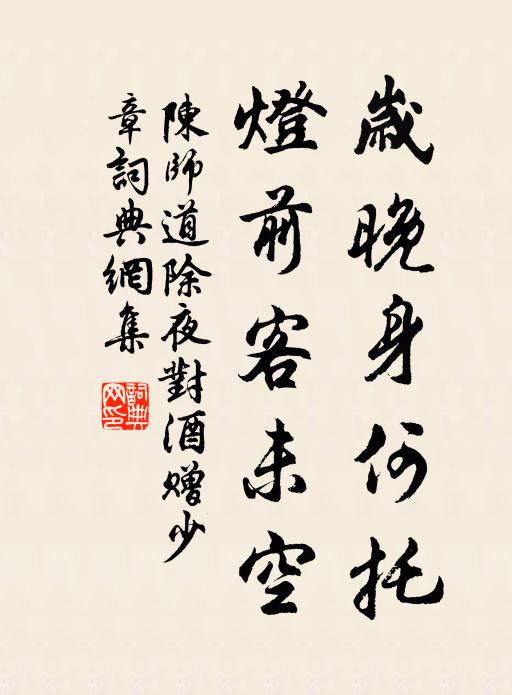 歲晚身何托
燈前客未空
陳師道除夜對酒贈少
章詞典網集
詞典
网印